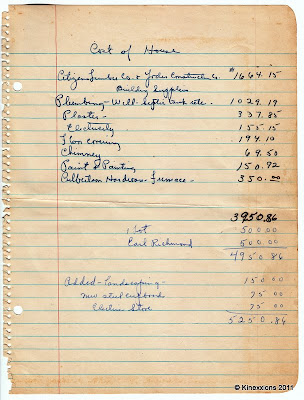 Cost of House
Citizens Lumber Co. & Yoder Construction Co. $1664.15
Building Supplies
Plumbing - Well - Septic tank etc. 1029.19
Plaster - 337.85
Electricity 155.15
Floor covering 194.10
Chimney 69.50
Paint & Painting 150.92
Culbertson Hardware - Furnace - 350.00
3950.86
1 Lot 500.00
Earl Richmond 500.00
4950.86
Added - Landscaping - 150.00
New steel cupboards 75 00
Electric Stove 75 00
5250.86
© Kinexxions 2011